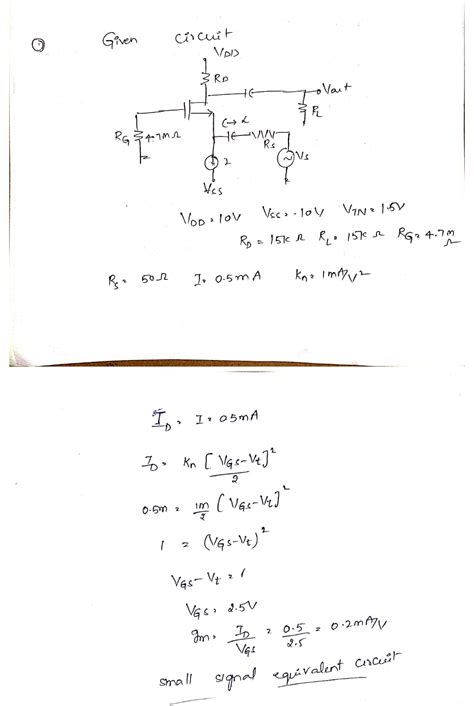 ① Given circuit
VDD
RD
Vout
RL
RG 4.7MΩ
Rs
Vs
I
VSS
VDD = 10V VSS = -10V VTN = 1.5V
RD = 15k Ω RL = 15k Ω RG = 4.7M Ω
Rs = 50Ω I = 0.5mA Kn = 1mA/V²
ID = I = 0.5mA
ID = Kn [VGS-Vt]² / 2
0.5m = 1m/2 [VGS-Vt]²
1 = (VGS-Vt)²
VGS-Vt = 1
VGS = 2.5V
gm = ID/VGS = 0.5/2.5 = 0.2mA/V
small signal equivalent circuit